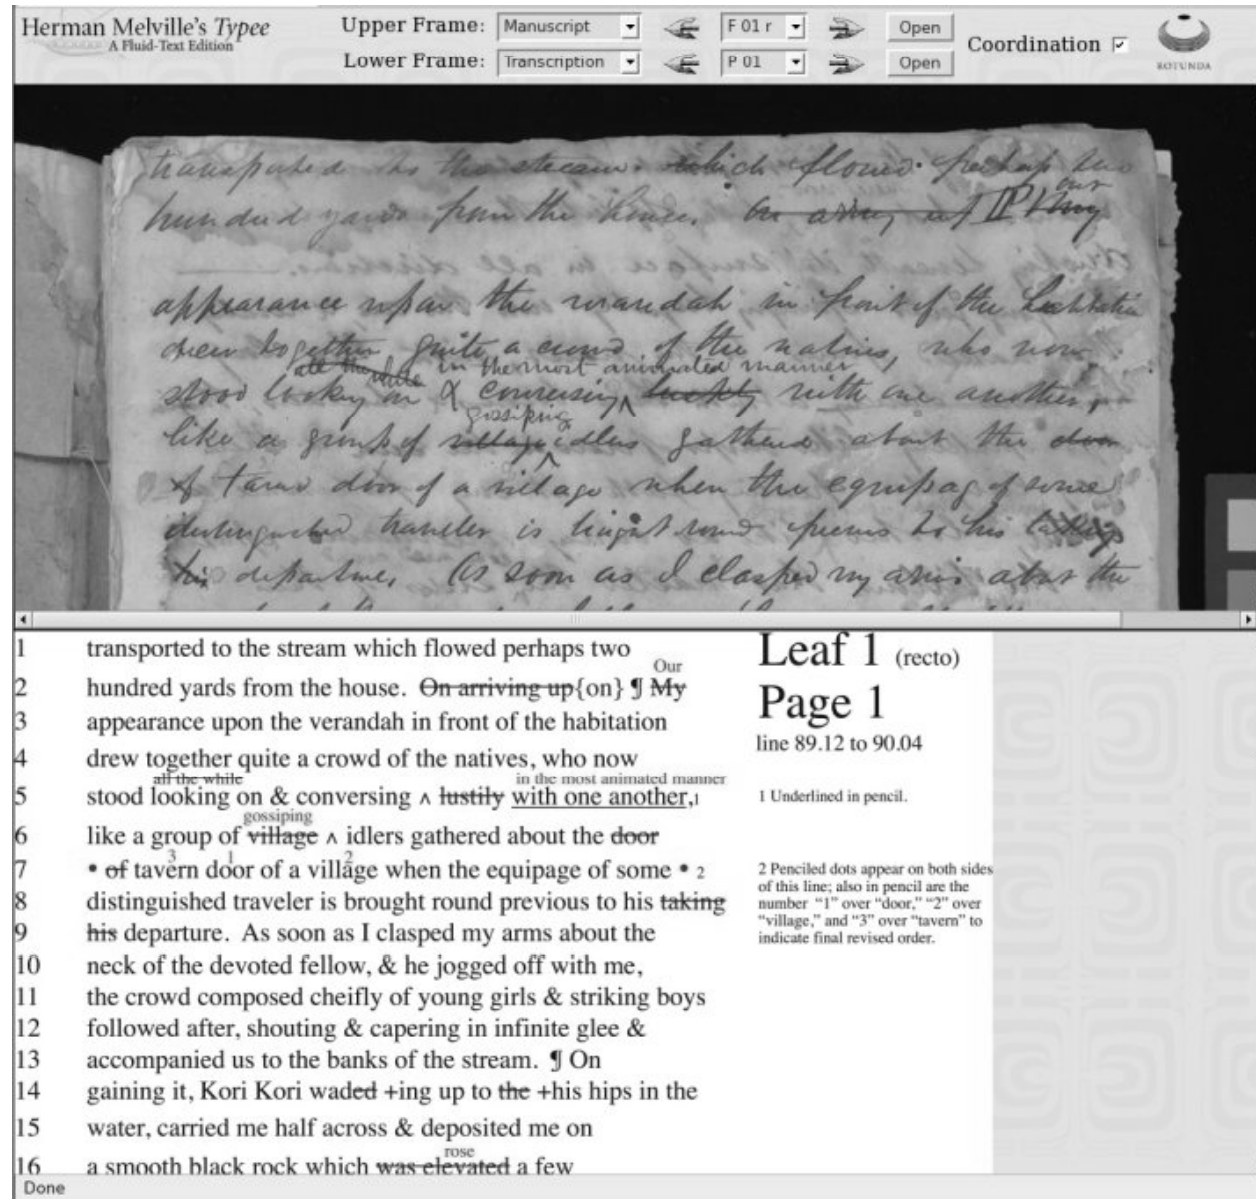 Herman Melville's Typee
A Fluid-Text Edition
Upper Frame: Manuscript F 01 r Open
Lower Frame: Transcription P 01 Open
Coordination
ROTUNDA
transported to the stream. which flowed perhaps two
hundred yards from the house. On arriving up ¶ My
our
appearance upon the verandah in front of the habitation
drew together quite a crowd of the natives, who now
all the while in the most animated manner
stood looking on & conversing ^ lustily with one another,
gossiping
like a group of village ^ idlers gathered about the door
of tavern door of a village when the equipage of some
distinguished traveler is brought round previous to his taking
his departure. As soon as I clasped my arms about the
1 transported to the stream which flowed perhaps two
Our
2 hundred yards from the house. On arriving up{on} ¶ My
3 appearance upon the verandah in front of the habitation
4 drew together quite a crowd of the natives, who now
all the while in the most animated manner
5 stood looking on & conversing ^ lustily with one another,1
gossiping
6 like a group of village ^ idlers gathered about the door
3 1 2
7 • of tavern door of a village when the equipage of some • 2
8 distinguished traveler is brought round previous to his taking
9 his departure. As soon as I clasped my arms about the
10 neck of the devoted fellow, & he jogged off with me,
11 the crowd composed cheifly of young girls & striking boys
12 followed after, shouting & capering in infinite glee &
13 accompanied us to the banks of the stream. ¶ On
14 gaining it, Kori Kori waded +ing up to the +his hips in the
15 water, carried me half across & deposited me on
rose
16 a smooth black rock which was elevated a few
Leaf 1 (recto)
Page 1
line 89.12 to 90.04
1 Underlined in pencil.
2 Penciled dots appear on both sides
of this line; also in pencil are the
number "1" over "door," "2" over
"village," and "3" over "tavern" to
indicate final revised order.
Done